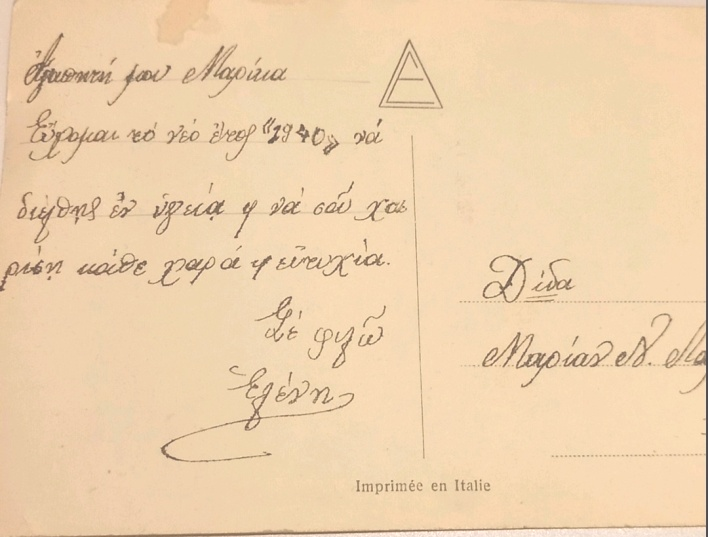 Ἀγαπητή μου Μαρίκα
Εὔχομαι τό νέο ἔτος "1940" νά
διέλθῃς ἐν ὑγείᾳ ϗ νά σοῦ χα
ρίσῃ κάθε χαρά ϗ εὐτυχία.
Σέ φιλῶ
Ἑλένη
Δίδα
Μαρίαν Ν.
Imprimée en Italie